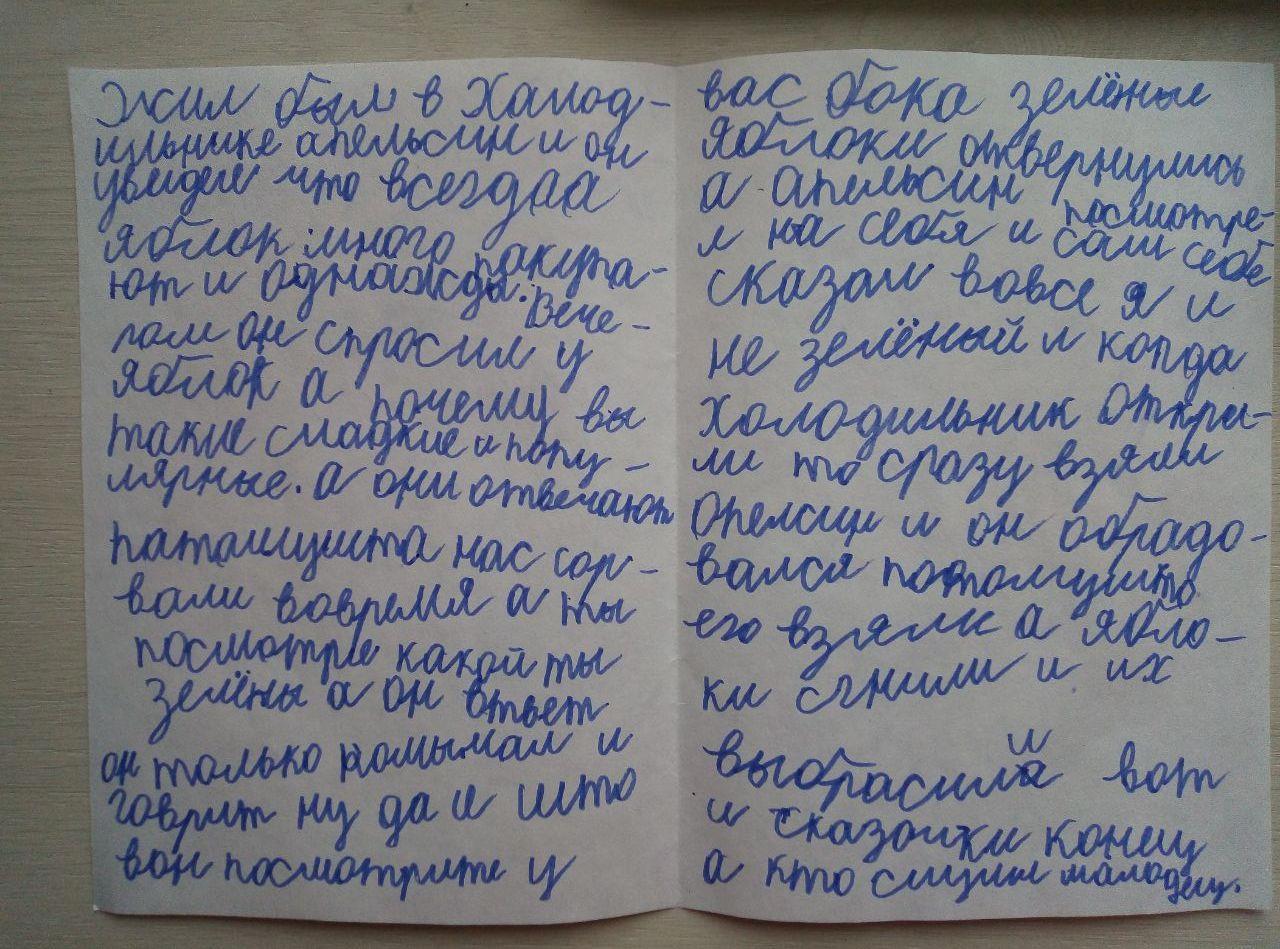 Жил был в Халод-
ильнике апельсин и он
увидел что всегдаа
яблок много пакупа-
ют и однажда. Вече-
ром он спросил у
яблок а почему вы
такие сладкие и попу-
лярные. а они отвечают
патамушта нас сор-
вали вовремя а ты
посмотри какой ты
зелёны а он втвет
он только помычал и
говрит ну да и што
вон посмотрите у
вас бока зелёные
яблоки отвернулись
а апельсин посмотре-
л на себя и сам себе
сказал вовсе я и
не зелёный и когда
холодильник откры-
ли то сразу взяли
опелсин и он обрадо-
вался потомушто
его взяли а ябло-
ки сгнили и их
выбрасили вот
и сказочки конец
а кто слушл маладец.